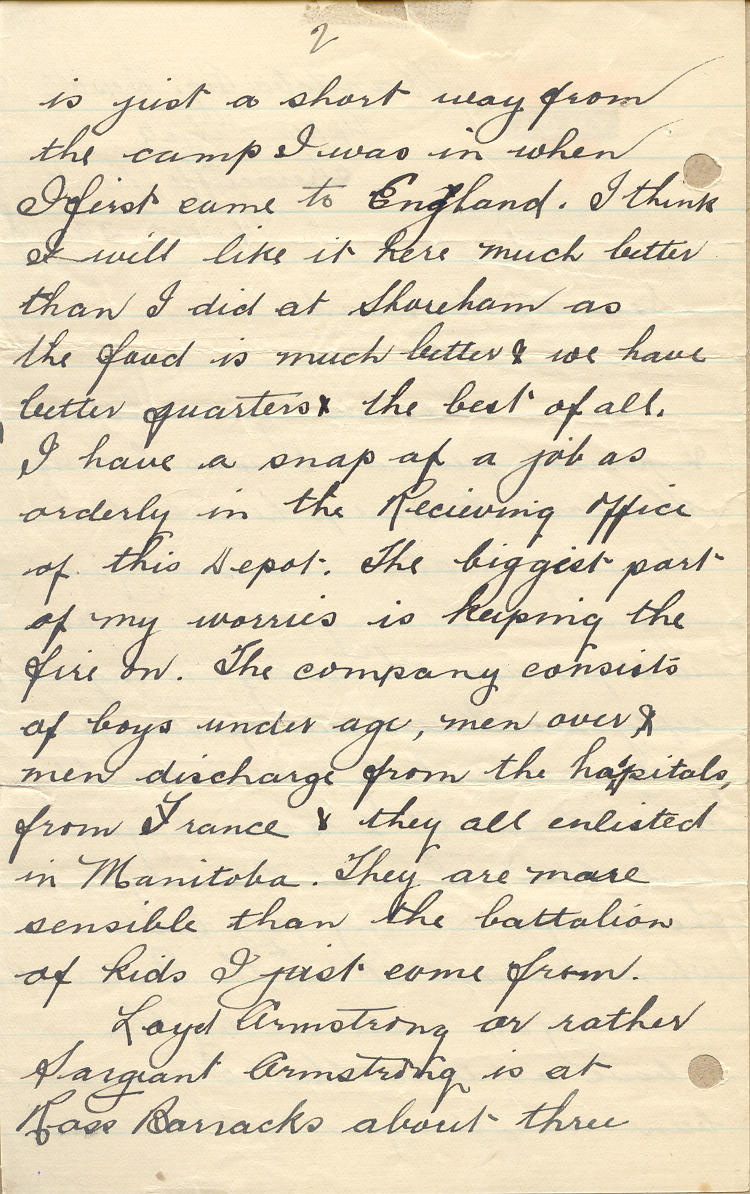 2
is just a short way from
the camp I was in when
I first came to England. I think
I will like it here much better
than I did at Shoreham as
the food is much better & we have
better quarters & the best of all.
I have a snap of a job as
orderly in the Recieving Office
of this Depot. The biggest part
of my worries is keeping the
fire on. The company consists
of boys under age, men over &
men discharge from the hospitals,
from France & they all enlisted
in Manitoba. They are more
sensible than the battalion
of kids I just come from.
Loyd Armstrong or rather
Sargeant Armstrong is at
Ross Barracks about three